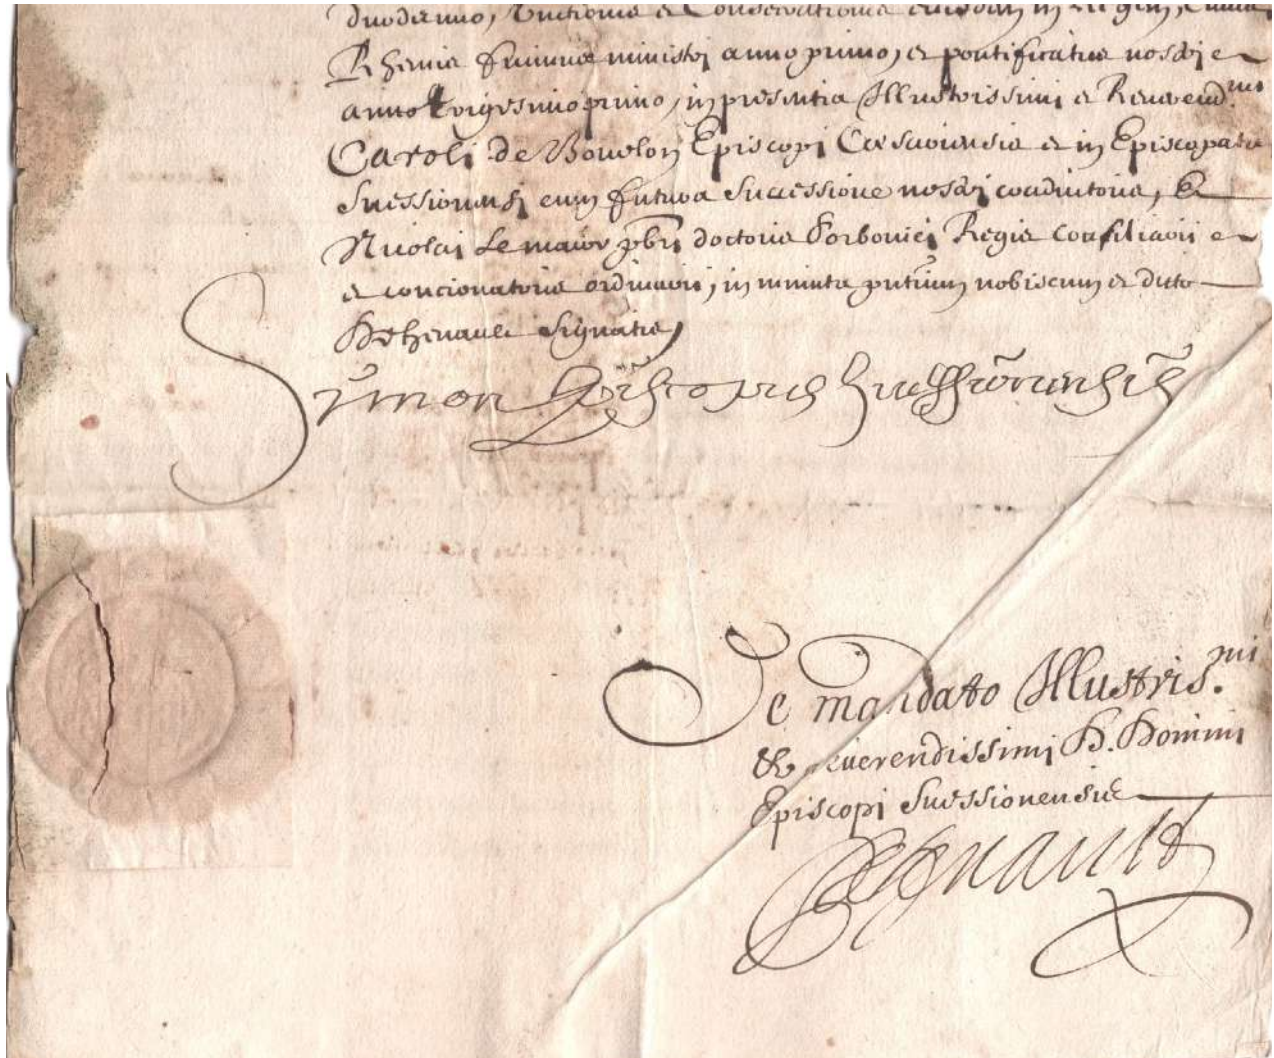 duodecimo, Unctionis et Consecrationis eiusdem in Regem, Civitate
Rhemis feliciter ministri anno primo, et pontificatus nostri
anno trigesimoprimo, in presentia Illustrissimi et Reverend.mi
Caroli de Bourlon Episcopi Cæsariensis et in Episcopatu
Suessionensi cum futura successione nostri coadiutoris, &
Nicolai Le maior pbri doctoris Sorbonici Regis consiliarii
et concionatoris ordinarii, in minuta pntium nobiscum et dicto
Dehenault signatis,
Symon Episcopus Suessionensis
De mandato Illustris.mi
& Reverendissimi D. Domini
Episcopi Suessionensis
Dehenault